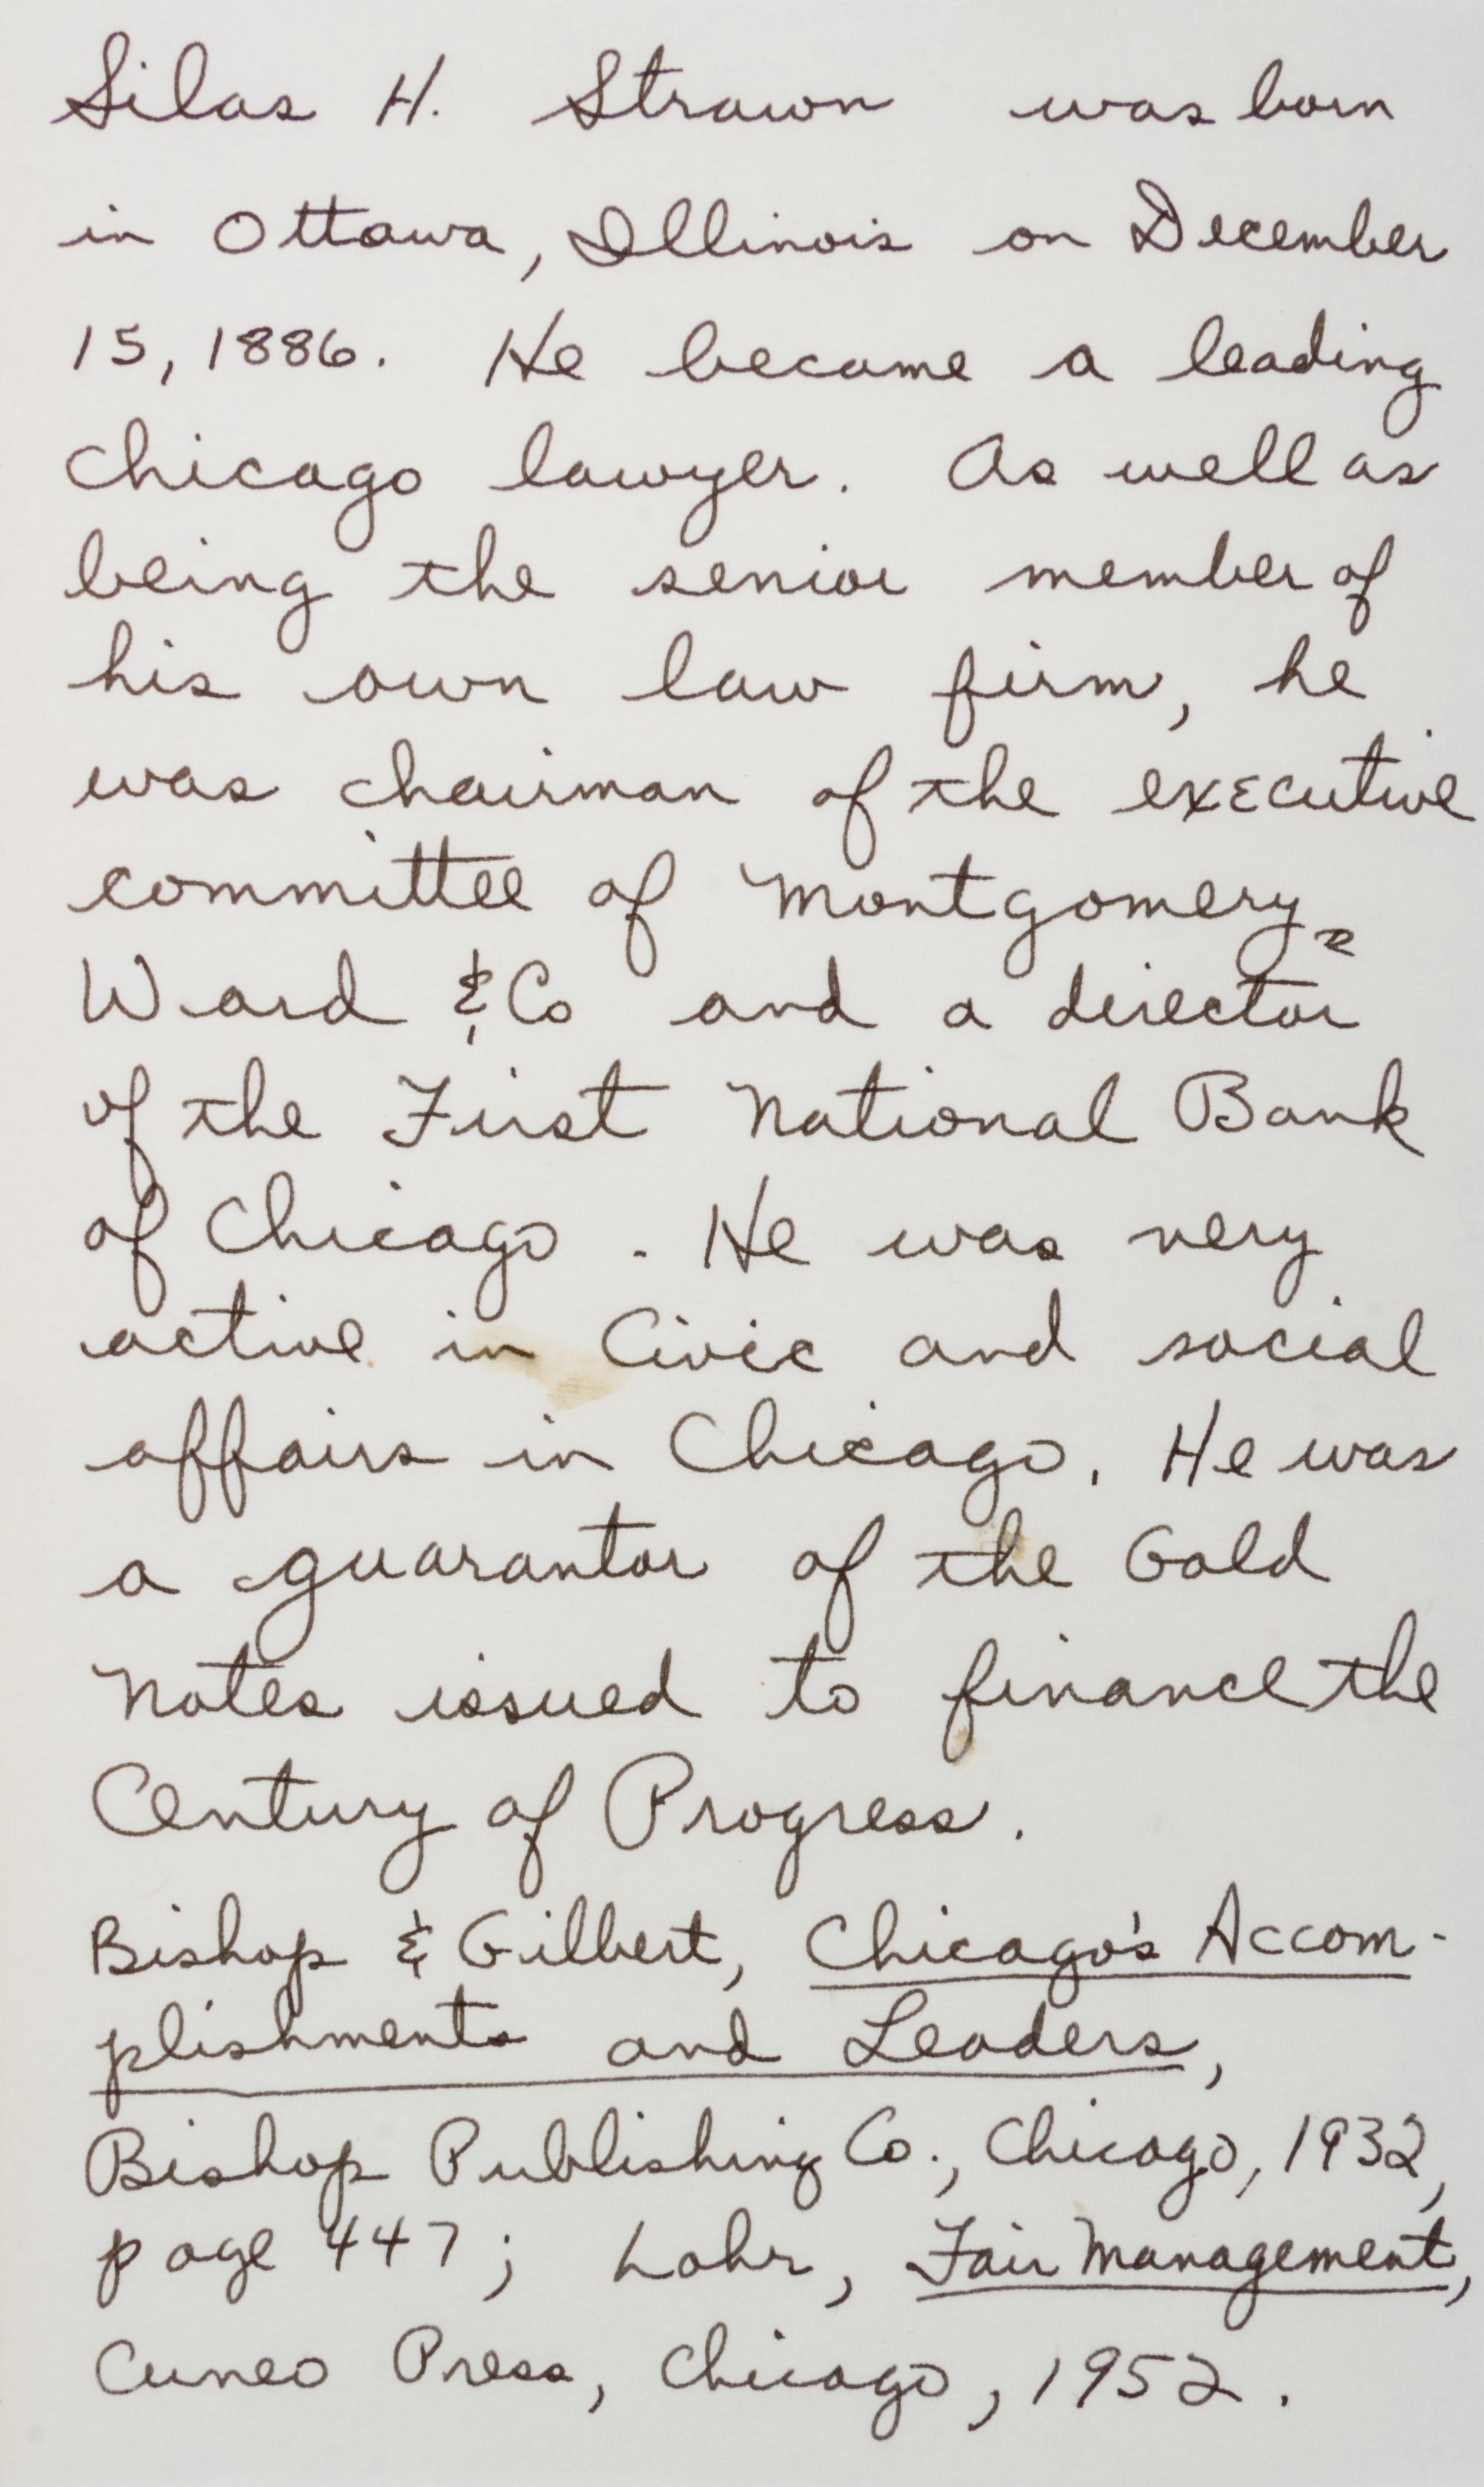 Silas H. Strawn was born
in Ottawa, Illinois on December
15, 1886. He became a leading
Chicago lawyer. As well as
being the senior member of
his own law firm, he
was chairman of the executive
committee of Montgomery
Ward & Co and a director
of the First National Bank
of Chicago. He was very
active in Civic and social
affairs in Chicago. He was
a guarantor of the Gold
Notes issued to finance the
Century of Progress.
Bishop & Gilbert, Chicago's Accom-
plishments and Leaders,
Bishop Publishing Co., Chicago, 1932,
page 447; Lohr, Fair Management,
Cuneo Press, Chicago, 1952.